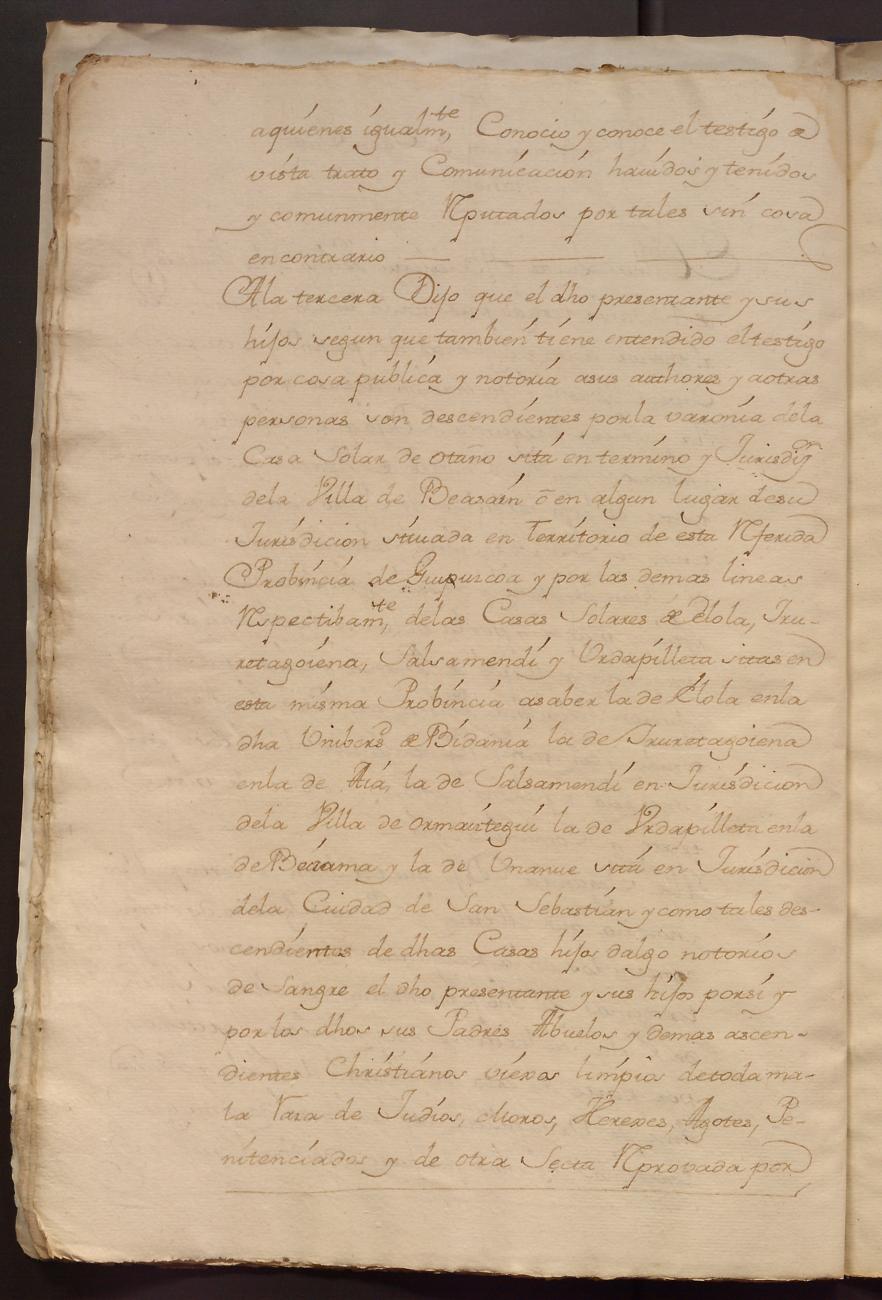 aquienes igualmte, Conocio y conoce el testigo de
vista trato y Comunicacion hauidos y tenidos
y comunmente Rputados por tales sin cosa
encontrario
Ala tercera Dijo que el dho presentante y sus
hijos segun que tambien tiene entendido el testigo
por cosa publica y notoria asus authores y aotras
personas son descendientes por la varonia dela
Casa Solar de otaño sitá en termino y Jurisdin
dela Villa de Beasain ō en algun lugar desu
Jurisdicion situada en Territorio de esta Rferida
Probincia de Guipuzcoa y por las demas lineas
Rspectibamte, delas Casas Solares de Elola, Iru-
retagoiena, Salsamendi y Urdapilleta sitas en
esta misma Probincia asaber la de Elola enla
dha Unibersd de Bidania la de Iruretagoiena
enla de Aia, la de Salsamendi en Jurisdicion
dela Villa de ormaiztegui la de Urdapilleta enla
de Beizama y la de Unanue sitá en Jurisdicion
dela Ciudad de San Sebastian y como tales des-
cendientes de dhas Casas hijos dalgo notorios
de Sangre el dho presentante y sus hijos porsi y
por los dhos sus Padres Abuelos y demas ascen-
dientes Christianos viexos limpios detoda ma-
la Raza de Judios, Moros, Herexes, Agotes, Pe-
nitenciados y de otra Secta Rprovada por